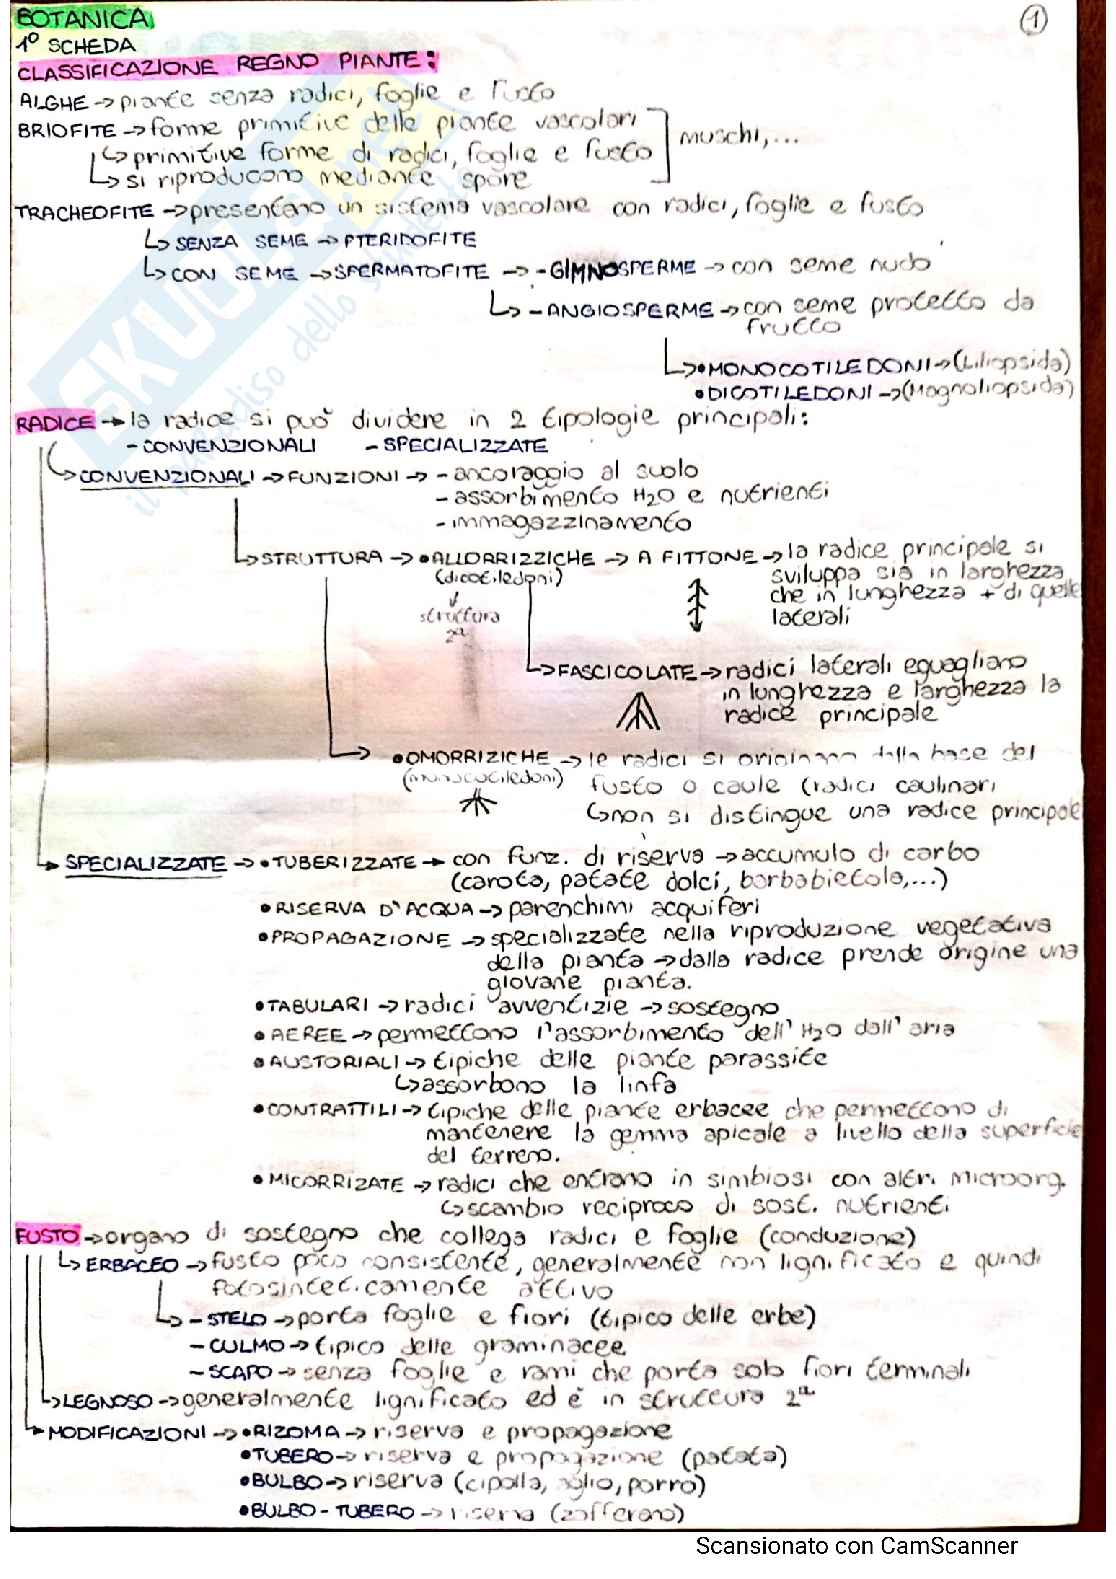 BOTANICA
1
1° SCHEDA
CLASSIFICAZIONE REGNO PIANTE:
ALGHE → piante senza radici, foglie e fusto
BRIOFITE → forme primitive delle piante vascolari
↳ primitive forme di radici, foglie e fusto
muschi,...
↳ si riproducono mediante spore
TRACHEOFITE → presentano un sistema vascolare con radici, foglie e fusto
↳ SENZA SEME → PTERIDOFITE
↳ CON SEME → SPERMATOFITE → - GIMNOSPERME → con seme nudo
↳ - ANGIOSPERME → con seme protetto da
frutto
↳ • MONOCOTILEDONI → (Liliopsida)
• DICOTILEDONI → (Magnoliopsida)
RADICE → la radice si può dividere in 2 tipologie principali:
- CONVENZIONALI - SPECIALIZZATE
↳ CONVENZIONALI → FUNZIONI → - ancoraggio al suolo
- assorbimento H2O e nutrienti
- immagazzinamento
↳ STRUTTURA → • ALLORRIZZICHE → A FITTONE → la radice principale si
(dicotiledoni)
sviluppa sia in larghezza
che in lunghezza + di quelle
laterali
↓
struttura
2ª
↳ FASCICOLATE → radici laterali eguagliano
in lunghezza e larghezza la
radice principale
→ • OMORRIZICHE → le radici si originano dalla base del
(monocotiledoni) fusto o caule (radici caulinari
↳ non si distingue una radice principale
↳ SPECIALIZZATE → • TUBERIZZATE → con funz. di riserva → accumulo di carbo
(carota, patate dolci, barbabietola,...)
• RISERVA D'ACQUA → parenchimi acquiferi
• PROPAGAZIONE → specializzate nella riproduzione vegetativa
della pianta → dalla radice prende origine una
giovane pianta.
• TABULARI → radici avventizie → sostegno
• AEREE → permettono l'assorbimento dell'H2O dall'aria
• AUSTORIALI → tipiche delle piante parassite
↳ assorbono la linfa
• CONTRATTILI → tipiche delle piante erbacee che permettono di
mantenere la gemma apicale a livello della superficie
del terreno.
• MICORRIZATE → radici che entrano in simbiosi con altri microorg.
↳ scambio reciproco di sost. nutrienti
FUSTO → organo di sostegno che collega radici e foglie (conduzione)
↳ ERBACEO → fusto poco consistente, generalmente non lignificato e quindi
fotosinteticamente attivo
↳ - STELO → porta foglie e fiori (tipico delle erbe)
- CULMO → tipico delle graminacee
- SCAPO → senza foglie e rami che porta solo fiori terminali
↳ LEGNOSO → generalmente lignificato ed è in struttura 2ª
↳ MODIFICAZIONI → • RIZOMA → riserva e propagazione
• TUBERO → riserva e propagazione (patata)
• BULBO → riserva (cipolla, aglio, porro)
• BULBO-TUBERO → riserva (zafferano)
Scansionato con CamScanner